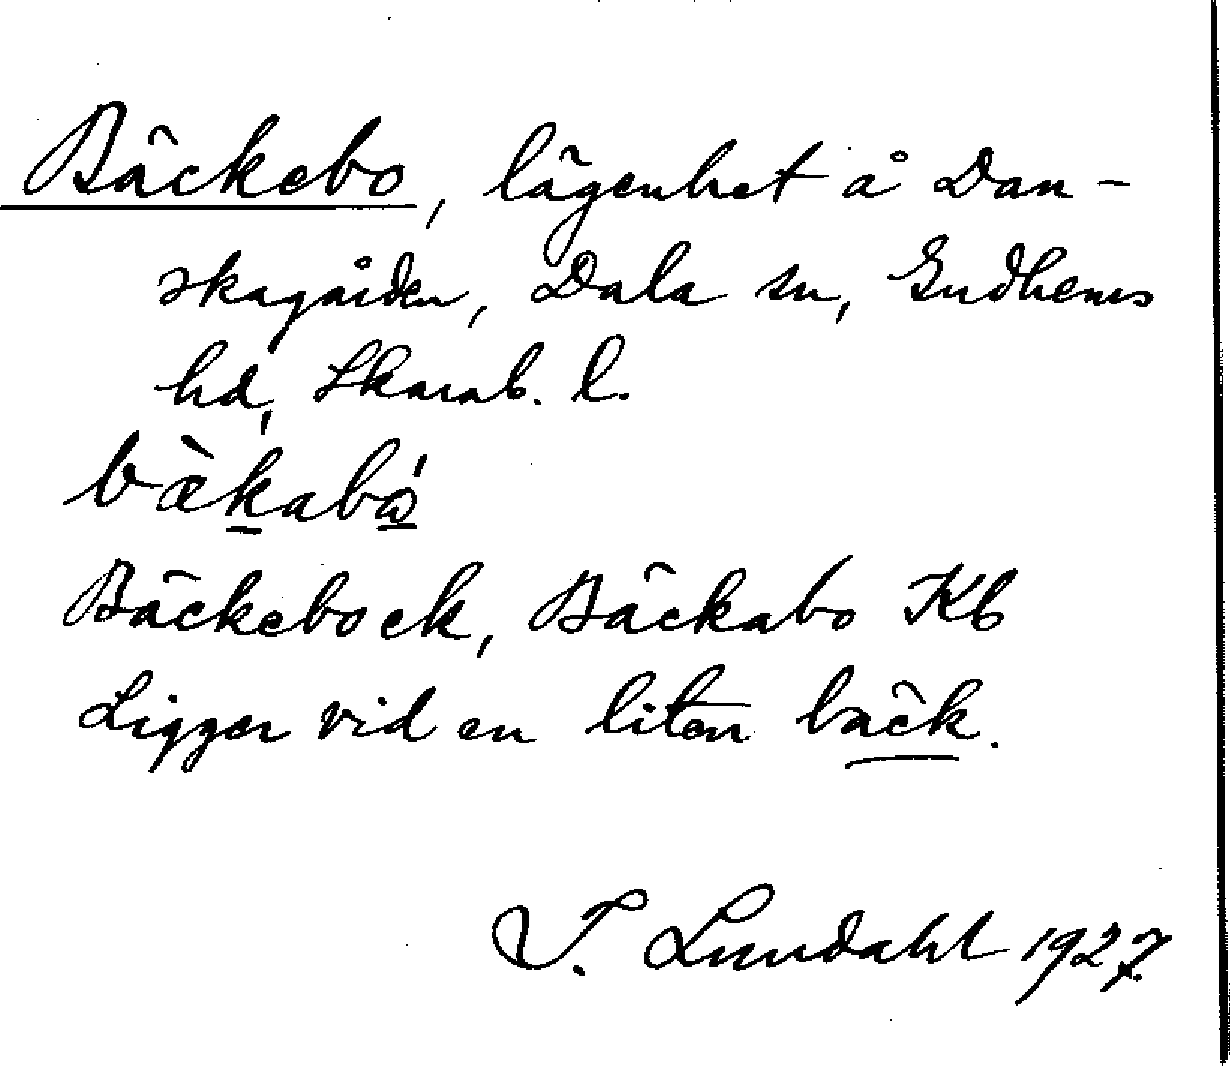 Bäckebo, lägenhet å Dan-
skagården, Dala sn, Gudhems
hd, Skarab. l.
bæ̀kabó
Bäckebo ek, Bäckabo Kb
Ligger vid en liten bäck.
I. Lundahl 1927.